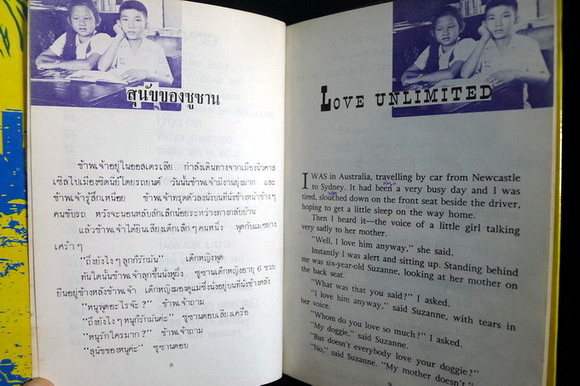 สุนัขของซูซาน
ข้าพเจ้าอยู่ในออสเตรเลีย กำลังเดินทางจากเมืองนิวคาส
เซิลไปเมืองซิดนีย์โดยรถยนต์ วันนั้นข้าพเจ้ามีงานยุ่งมาก และ
ข้าพเจ้ารู้สึกเหนื่อย ข้าพเจ้าทรุดตัวลงนั่งบนที่นั่งข้างหน้าข้าง ๆ
คนขับรถ หวังจะนอนหลับสักเล็กน้อยระหว่างทางกลับบ้าน
แล้วข้าพเจ้าได้ยินเสียงเด็กเล็ก ๆ คนหนึ่ง พูดกับแม่อย่าง
เศร้า ๆ
"ถึงยังไง ๆ ลูกก็รักมัน" เด็กหญิงพูด
ทันใดนั้นข้าพเจ้าลุกขึ้นนั่งหูผึ่ง ซูซานเด็กหญิงอายุ 6 ขวบ
ยืนอยู่ข้างหลังข้าพเจ้า เด็กหญิงมองดูแม่ซึ่งนั่งอยู่บนที่นั่งข้างหลัง
"หนูพูดอะไรจ๊ะ?" ข้าพเจ้าถาม
"ถึงยังไง ๆ หนูก็รักมันค่ะ" ซูซานตอบเสียงเครือ
"หนูรักใครมาก?" ข้าพเจ้าถาม
"สุนัขของหนูค่ะ" ซูซานตอบ
8
LOVE UNLIMITED
I WAS in Australia, travelling by car from Newcastle
to Sydney. It had been a very busy day and I was
tired, slouched down on the front seat beside the driver,
hoping to get a little sleep on the way home.
Then I heard it—the voice of a little girl talking
very sadly to her mother.
"Well, I love him anyway," she said.
Instantly I was alert and sitting up. Standing behind
me was six-year-old Suzanne, looking at her mother on
the back seat.
"What was that you said?" I asked.
"I love him anyway," said Suzanne, with tears in
her voice.
"Whom do you love so much?" I asked.
"My doggie," said Suzanne.
"But doesn't everybody love your doggie?"
"No," said Suzanne. "My mother doesn't."